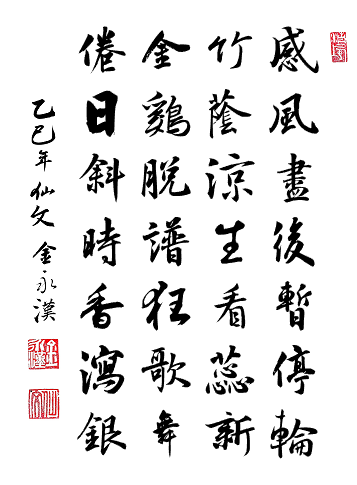 感風盡後暫停輪
竹蔭涼生看蕊新
金鷄脱譜狂歌舞
倦日斜時香瀉銀
乙巳年 仙文 金永漢